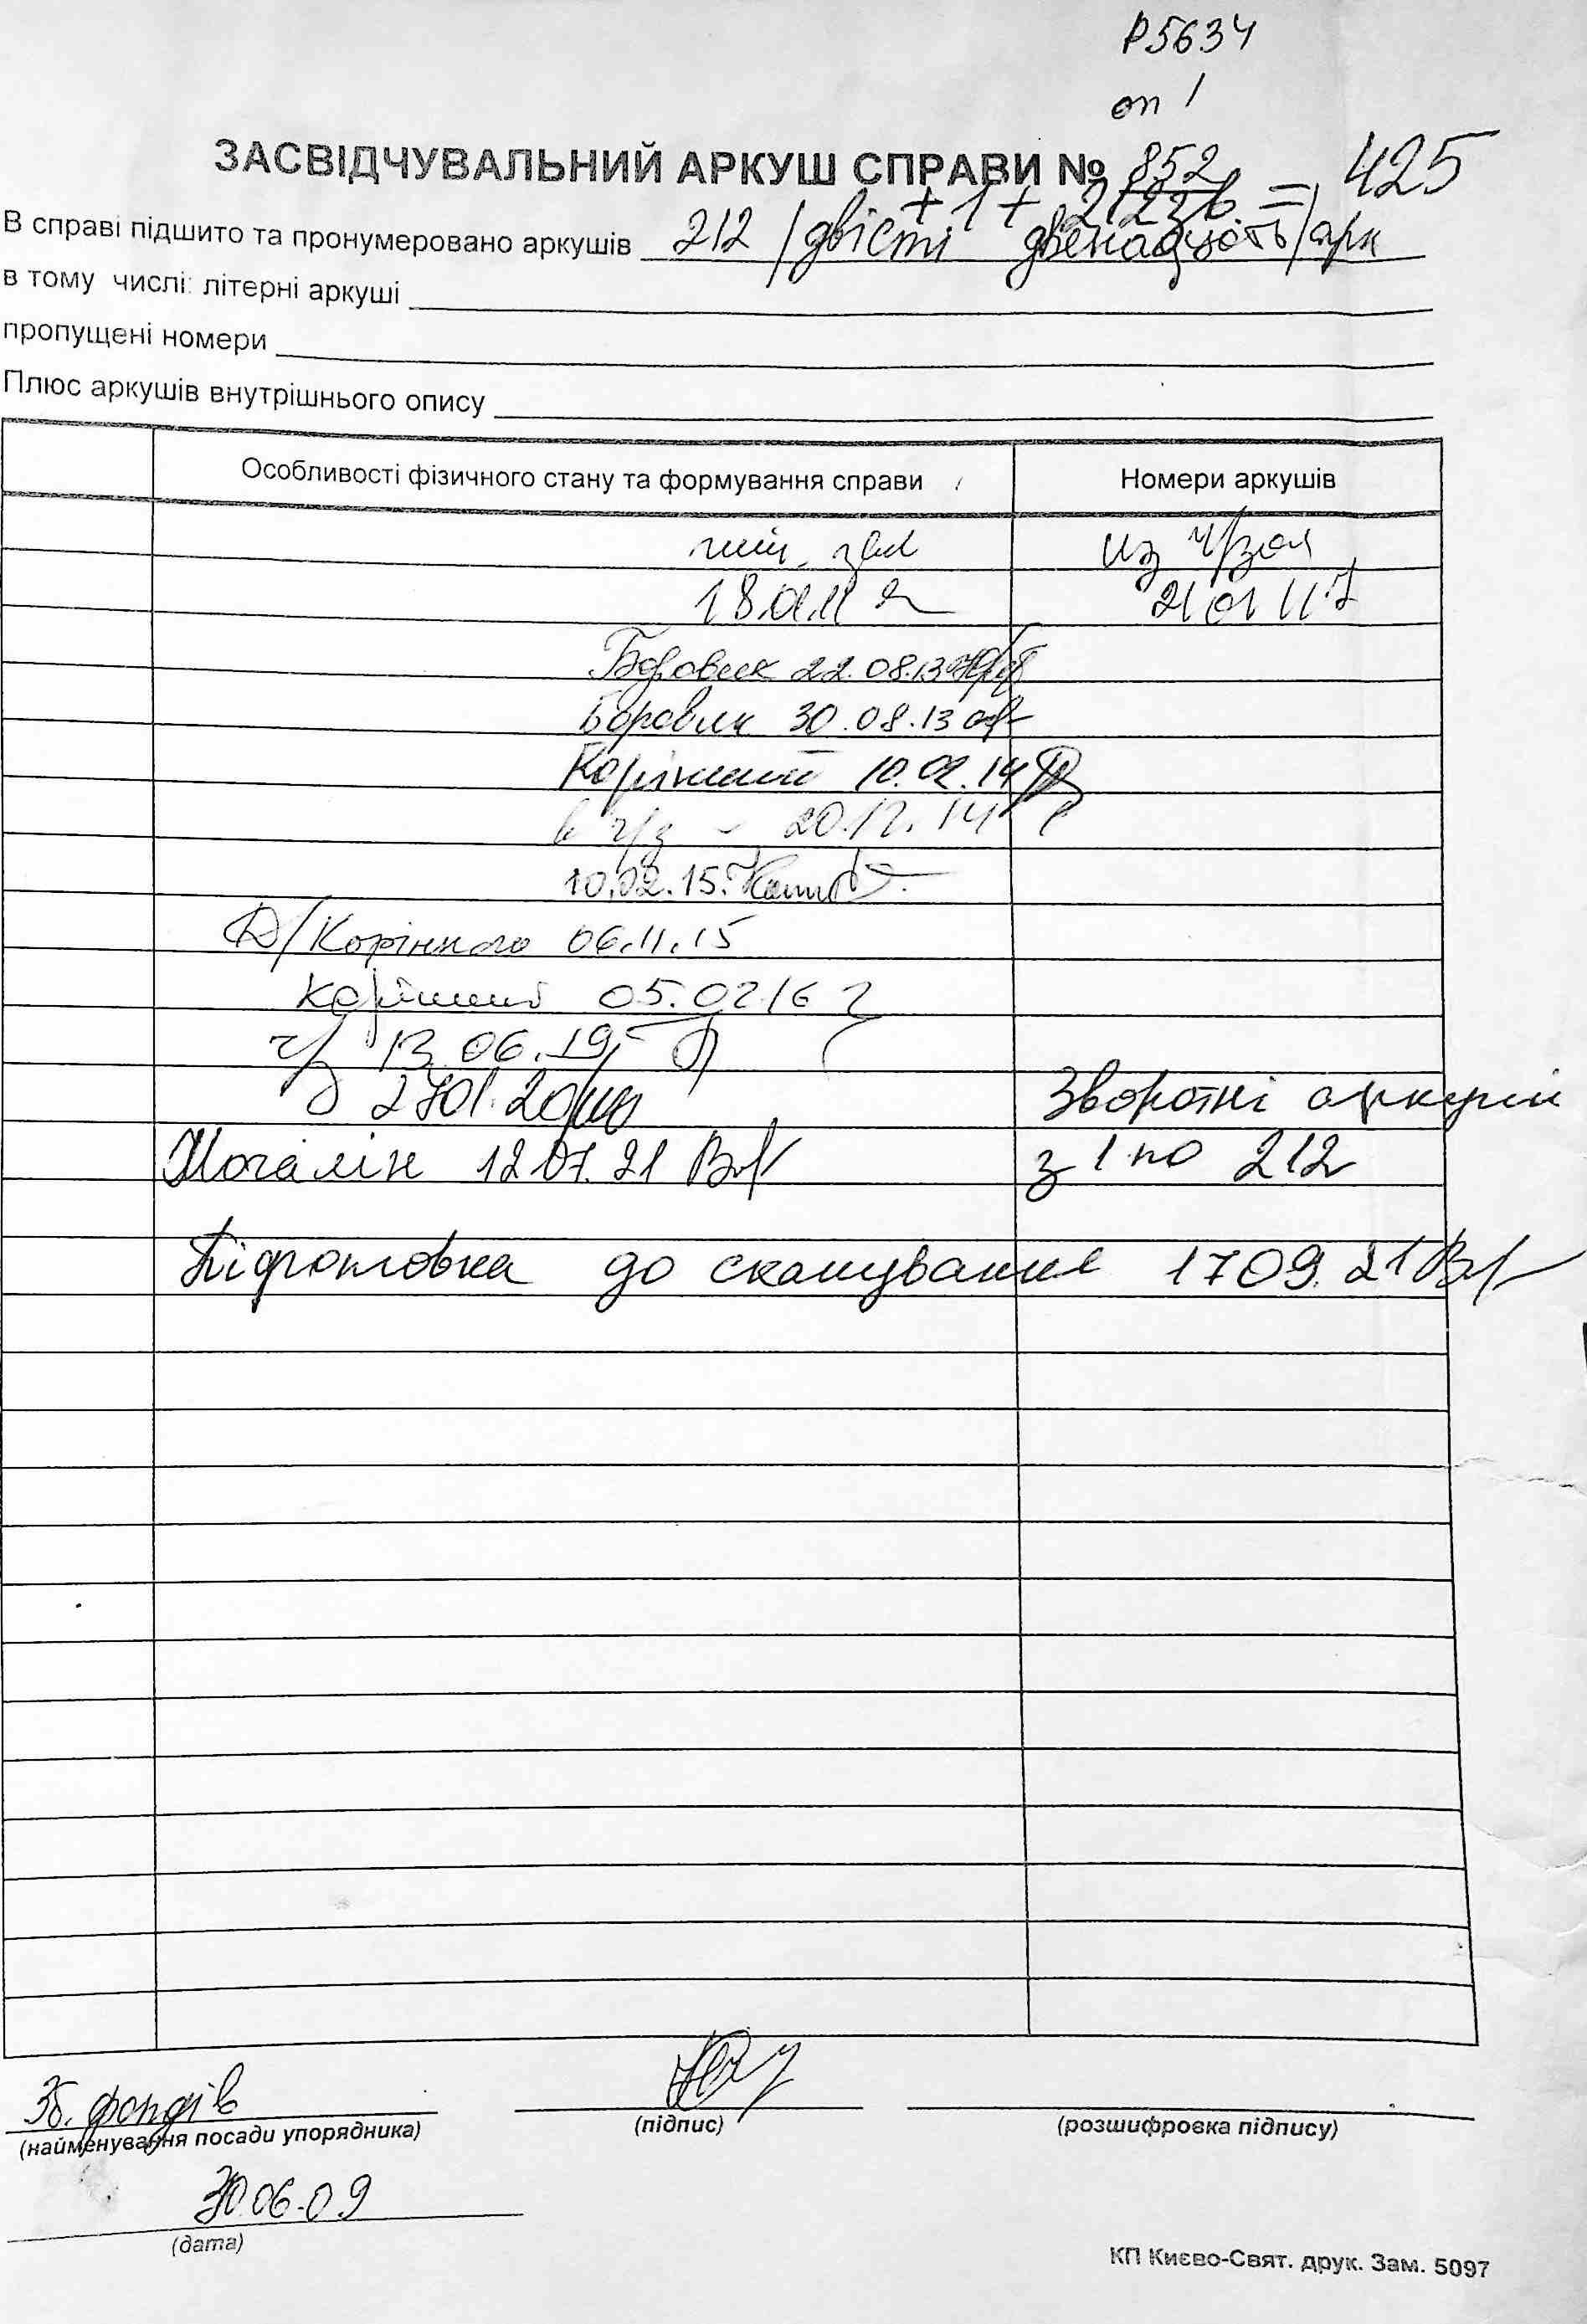 Р5634
оп 1
ЗАСВІДЧУВАЛЬНИЙ АРКУШ СПРАВИ № 852
+ 1 + 212зв. = 425
В справі підшито та пронумеровано аркушів 212 /двісті двенадцять/арк
в тому числі: літерні аркуші
пропущені номери
Плюс аркушів внутрішнього опису
Особливості фізичного стану та формування справи Номери аркушів
чит. зал из ч/зол
18.01.11 21 01 11
Боровик 22.08.13
Боровик 30.08.13
Корінний 10.02.14
в ч/з - 20.12.14
10.02.15.
Д/Корінного 06.11.15
Корінний 05.02.16
ч/з 13.06.19
27.01.20 Зворотні аркуші
Могалін 12.07.21 з 1 по 212
Підготовка до сканування 17 09.21
Зб. фондів
(найменування посади упорядника) (підпис) (розшифровка підпису)
30.06.09
(дата)
КП Києво-Свят. друк. Зам. 5097